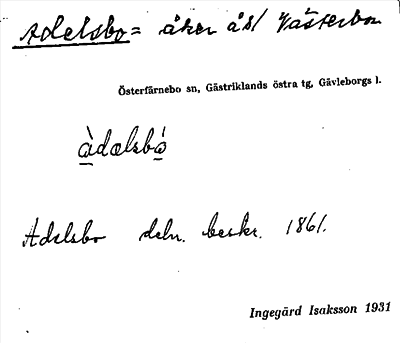 Adelsbo = åker å s/ Västerbo
Österfärnebo sn, Gästriklands östra tg, Gävleborgs l.
àdælsbó
Adelsbo deln. beskr. 1861.
Ingegärd Isaksson 1931